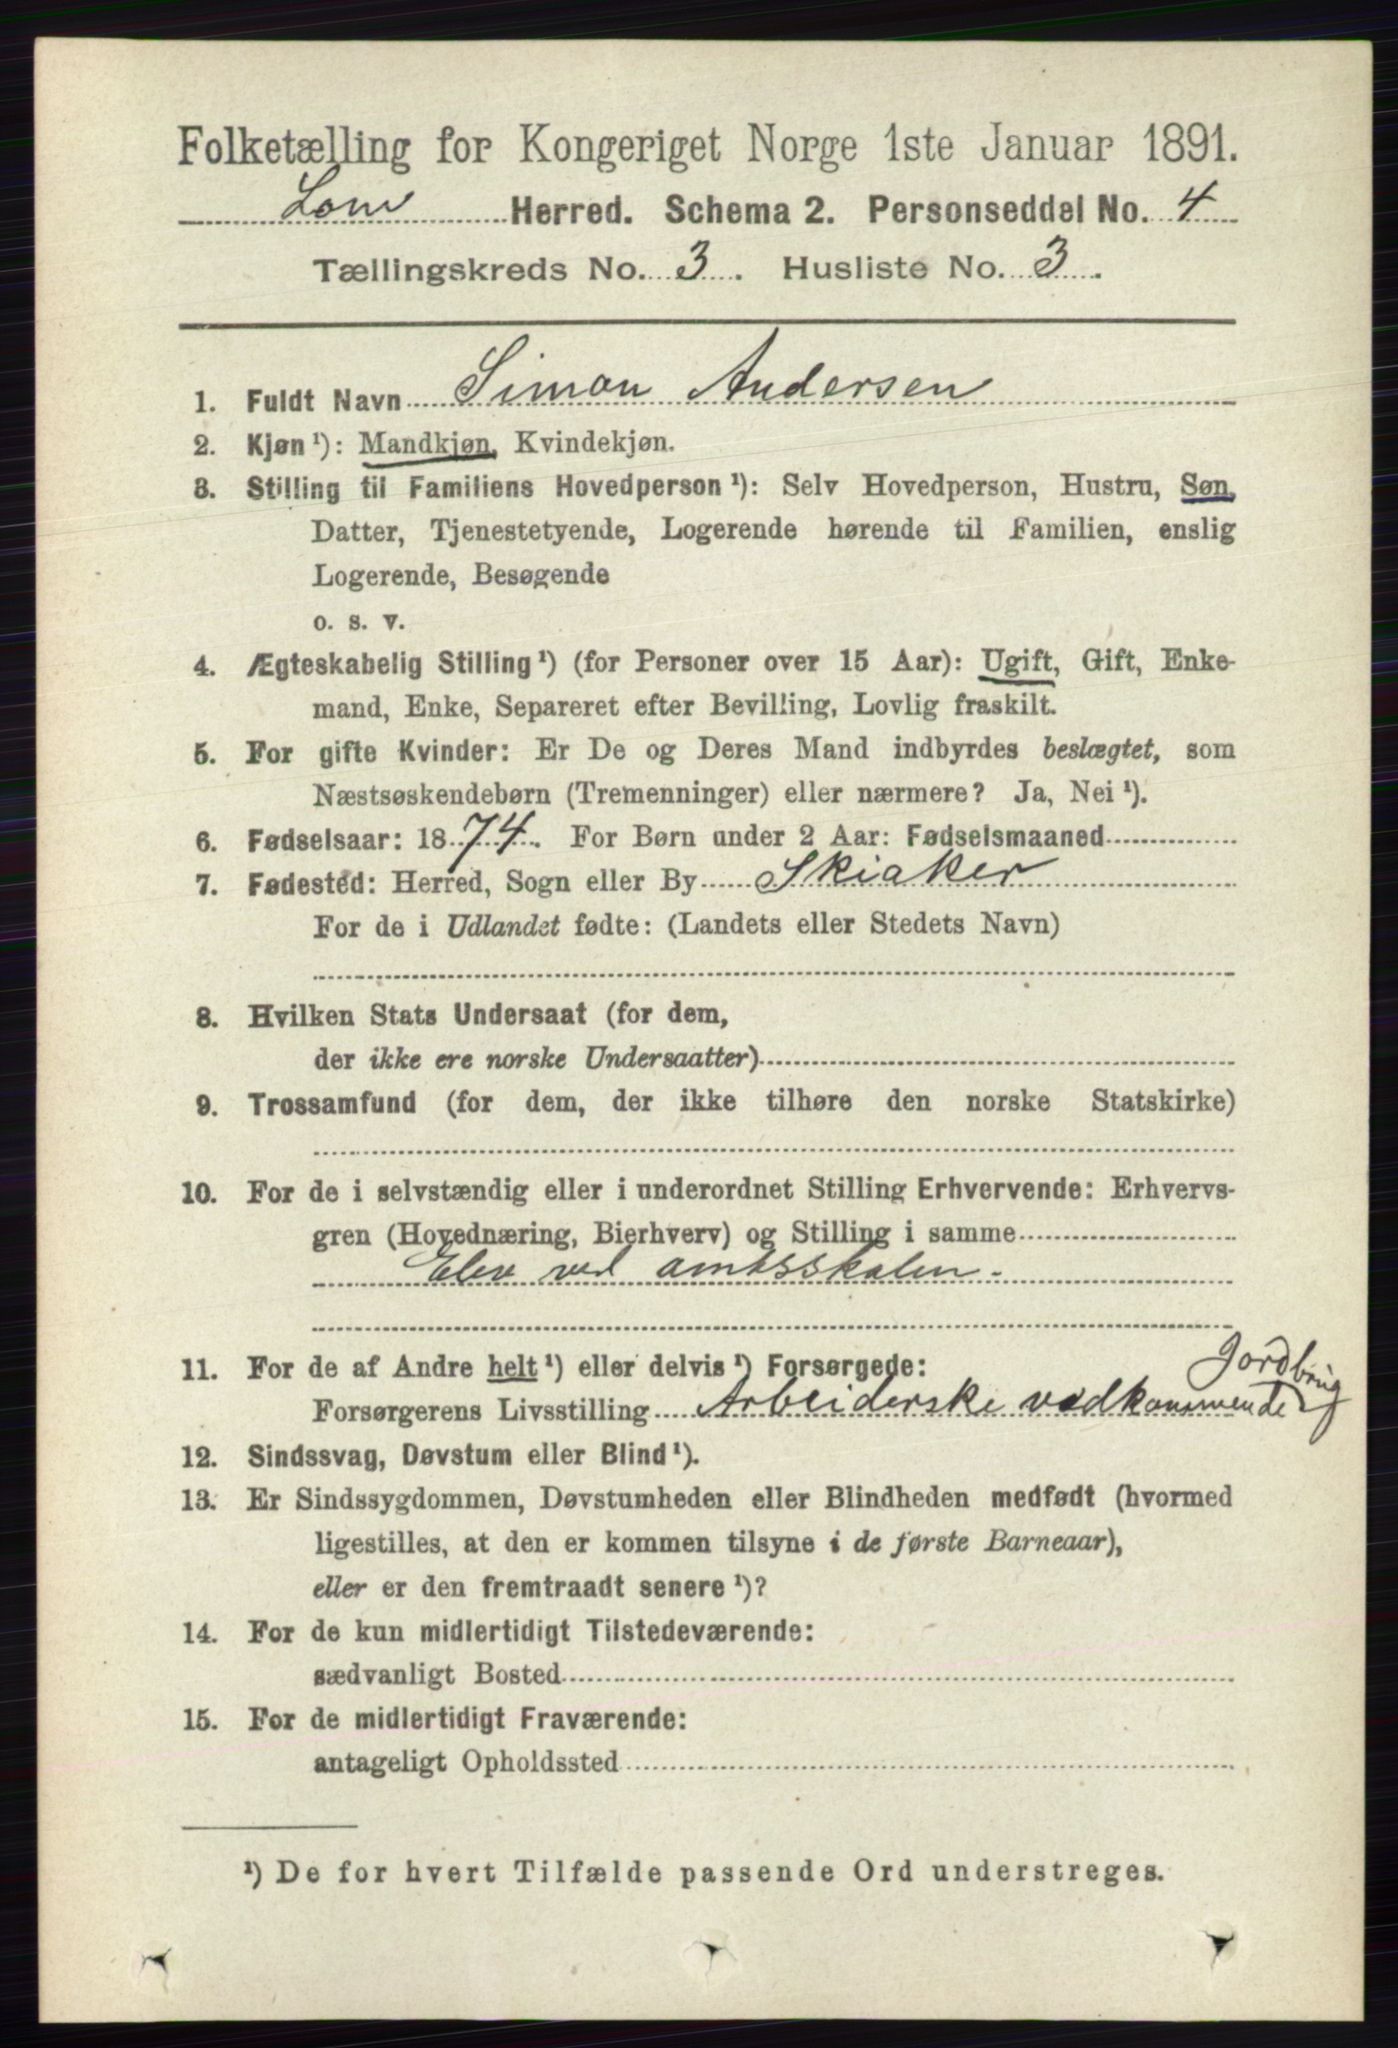 Folketælling for Kongeriget Norge 1ste Januar 1891.
Lom Herred. Schema 2. Personseddel No. 4
Tællingskreds No. 3. Husliste No. 3.
1. Fuldt Navn Simon Andersen
2. Kjøn¹): Mandkjøn, Kvindekjøn.
3. Stilling til Familiens Hovedperson¹): Selv Hovedperson, Hustru, Søn,
Datter, Tjenestetyende, Logerende hørende til Familien, enslig
Logerende, Besøgende
o. s. v.
4. Ægteskabelig Stilling¹) (for Personer over 15 Aar): Ugift, Gift, Enke-
mand, Enke, Separeret efter Bevilling, Lovlig fraskilt.
5. For gifte Kvinder: Er De og Deres Mand indbyrdes beslægtet, som
Næstsøskendebørn (Tremenninger) eller nærmere? Ja, Nei¹).
6. Fødselsaar: 1874. For Børn under 2 Aar: Fødselsmaaned
7. Fødested: Herred, Sogn eller By Skiaker
For de i Udlandet fødte: (Landets eller Stedets Navn)
8. Hvilken Stats Undersaat (for dem,
der ikke ere norske Undersaatter)
9. Trossamfund (for dem, der ikke tilhøre den norske Statskirke)
10. For de i selvstændig eller i underordnet Stilling Erhvervende: Erhvervs-
gren (Hovednæring, Bierhverv) og Stilling i samme
Elev ved amtsskolen.
11. For de af Andre helt¹) eller delvis¹) Forsørgede:
Jordbrug
Forsørgerens Livsstilling Arbeiderske vedkommende
12. Sindssvag, Døvstum eller Blind¹).
13. Er Sindssygdommen, Døvstumheden eller Blindheden medfødt (hvormed
ligestilles, at den er kommen tilsyne i de første Barneaar),
eller er den fremtraadt senere¹)?
14. For de kun midlertidigt Tilstedeværende:
sædvanligt Bosted
15. For de midlertidigt Fraværende:
antageligt Opholdssted
¹) De for hvert Tilfælde passende Ord understreges.